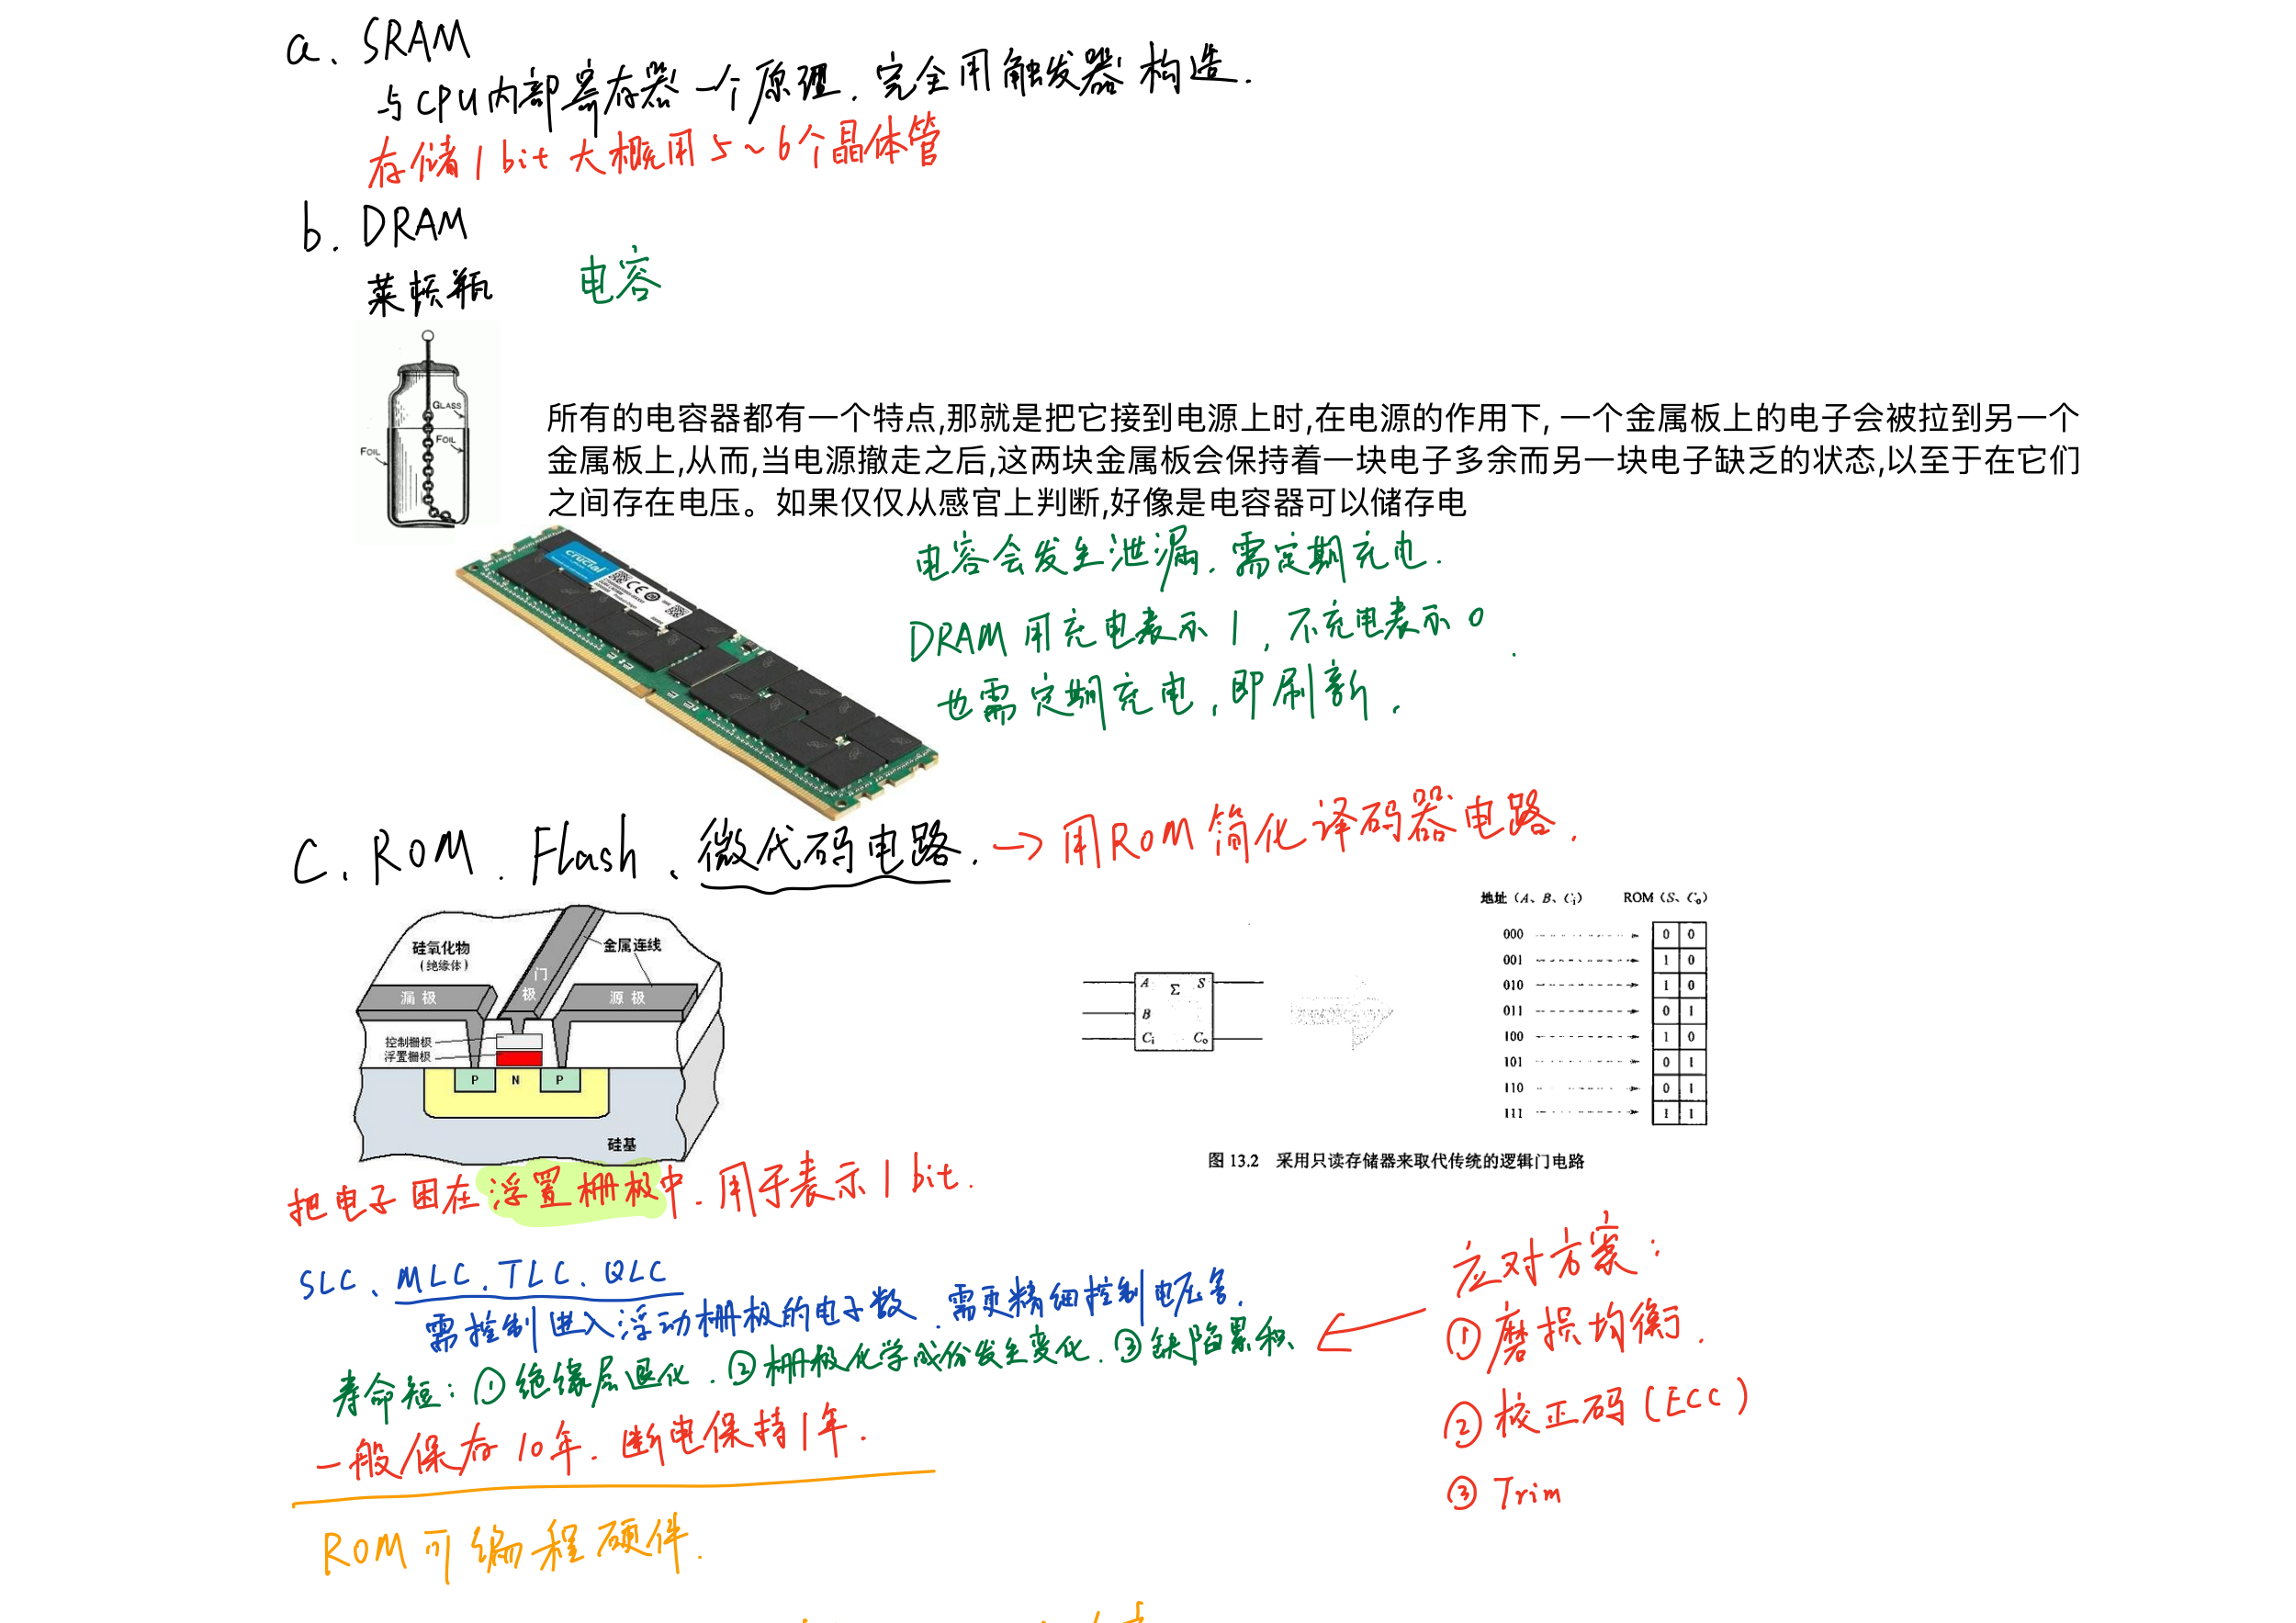 a、SRAM
与CPU内部寄存器一个原理．完全用触发器构造．
存储1bit大概用5~6个晶体管
b．DRAM
莱顿瓶 电容
GLASS
FOIL
FOIL
所有的电容器都有一个特点,那就是把它接到电源上时,在电源的作用下, 一个金属板上的电子会被拉到另一个
金属板上,从而,当电源撤走之后,这两块金属板会保持着一块电子多余而另一块电子缺乏的状态,以至于在它们
之间存在电压。如果仅仅从感官上判断,好像是电容器可以储存电
crucial
CE
电容会发生泄漏．需定期充电．
DRAM用充电表示1，不充电表示0．
也需定期充电，即刷新．
C、ROM．Flash、微代码电路．→用ROM简化译码器电路．
硅氧化物
（绝缘体）
金属连线
门极
漏极
源极
控制栅极
浮置栅极
P N P
硅基
地址（A、B、Ci） ROM（S、Co）
000 0 0
001 1 0
010 1 0
011 0 1
100 1 0
101 0 1
110 0 1
111 1 1
A Σ S
B
Ci Co
图 13.2 采用只读存储器来取代传统的逻辑门电路
把电子困在浮置栅极中．用于表示1bit．
SLC、MLC．TLC．QLC
需控制进入浮动栅极的电子数．需更精细控制电压等．
寿命短：①绝缘层退化．②栅极化学成份发生变化．③缺陷累积、
一般保存10年．断电保持1年．
应对方案：
①磨损均衡．
②校正码(ECC)
③Trim
ROM可编程硬件．